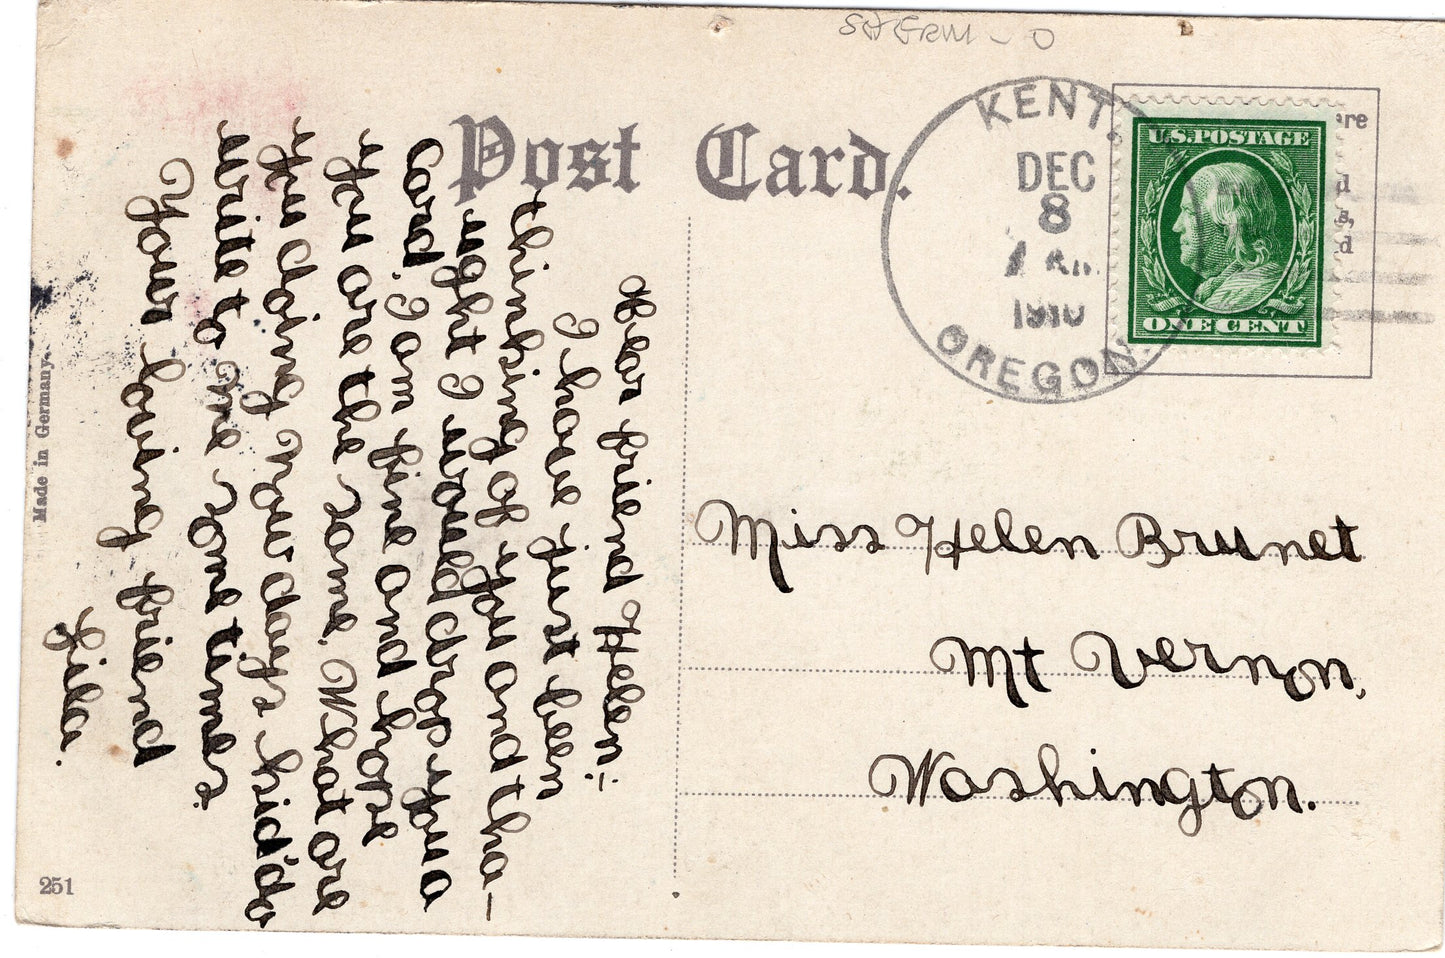 SHERM - O
Post Card.
KENT.
DEC
8
1910
OREGON.
U.S. POSTAGE
ONE CENT
ere
d
s,
d
Miss Helen Brunet
Mt Vernon,
Washington.
Dear friend Helen:-
I have just been
thinking of you and tha-
ught I would drop you a
card. I am fine and hope
you are the same. What are
you doing now days kid? do
write to me some times.
Your loving friend
Lila.
Made in Germany.
251